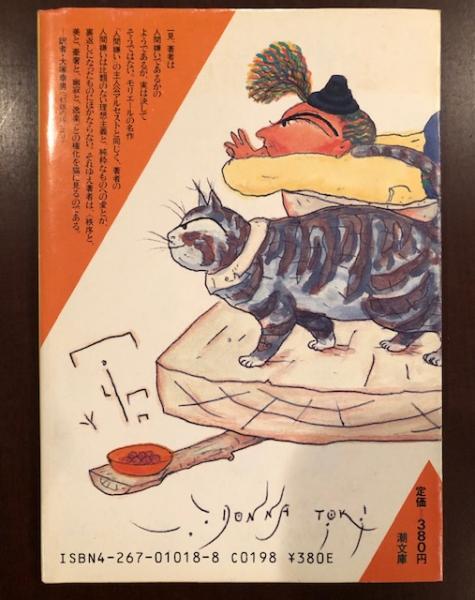 一見、著者は
人間嫌いであるかの
ようであるが、実は決して
そうではない。モリエールの名作
『人間嫌い』の主人公アルセストと同じく、著者の
人間嫌いは比類のない理想主義と、純粋なものへの愛とが、
裏返しになったものにほかならない。それゆえ著者は、〈秩序と、
美と、豪奢と、幽寂と、逸楽〉との権化を猫に見るのである。
訳者・大塚幸男
DONNA TOKi
定価=380円
潮文庫
ISBN4-267-01018-8 C0198 ¥380E